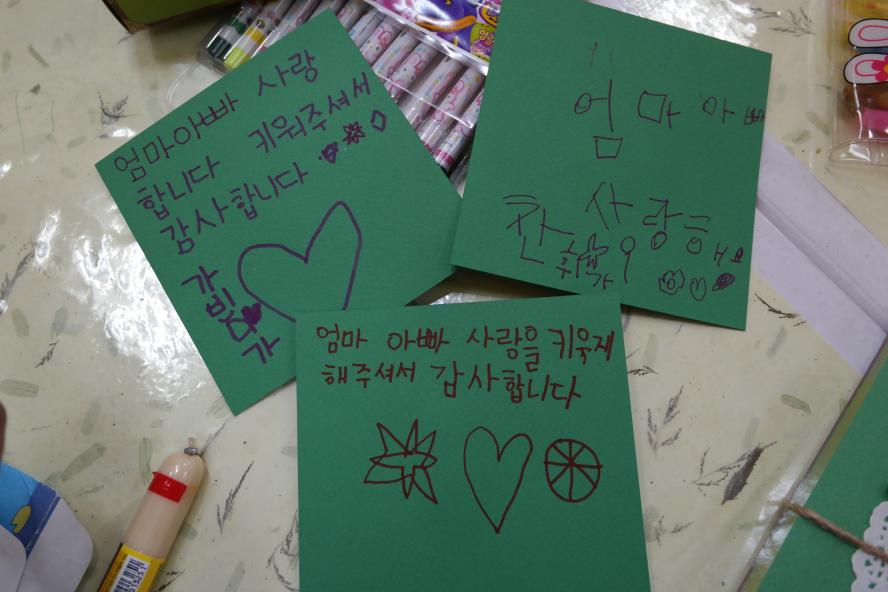 엄마아빠 사랑
합니다 키워주셔서
감사합니다
가
빈
가
엄마 아빠
사랑해
요
가
엄마 아빠 사랑을 키
해주셔서 감사합니다